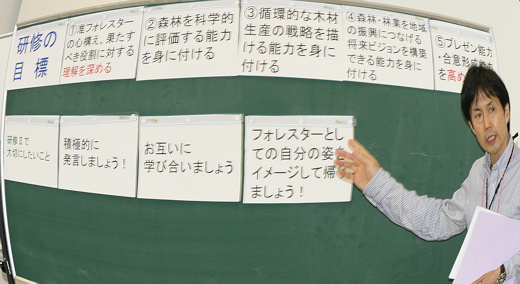 研修の
目標
①准フォレスター
の心構え、果たす
べき役割に対する
理解を深める
②森林を科学的
に評価する能力
を身に付ける
③循環的な木材
生産の戦略を描
ける能力を身に
付ける
④森林・林業を地域
の振興につなげる
将来ビジョンを構築
できる能力を身に
付ける
⑤プレゼン能力
・合意形成能力
を高め
研修Ⅱで
大切にしたいこと
積極的に
発言しましょう！
お互いに
学び合いましょう
フォレスターとし
ての自分の姿を
イメージして帰り
ましょう！